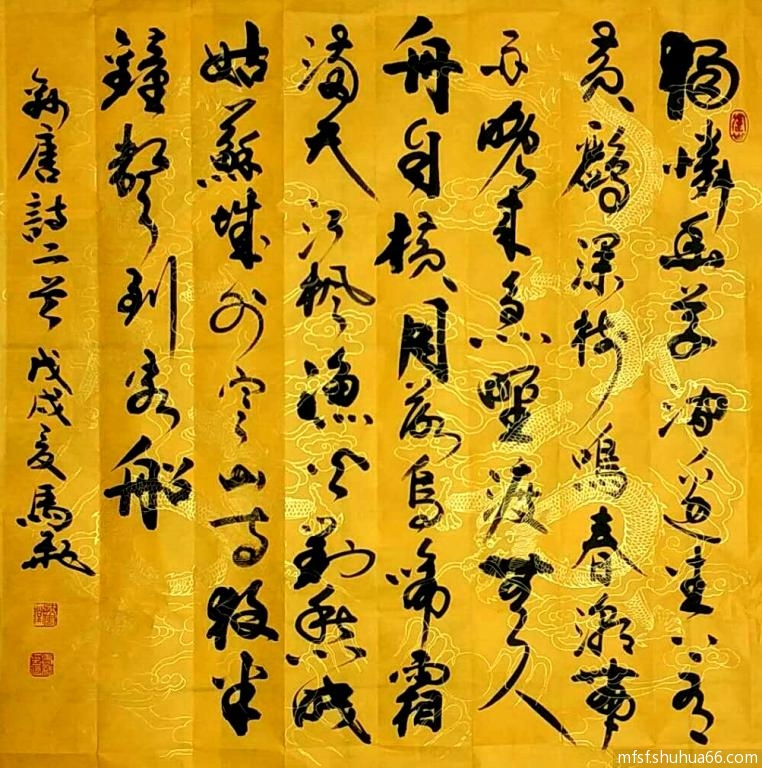 獨憐幽草澗邊生上有
黃鸝深樹鳴春潮帶
雨晚來急野渡無人
舟自橫月落烏啼霜
滿天江楓漁火對愁眠
姑蘇城外寒山寺夜半
鐘聲到客船
錄唐詩二首 戊戌夏 馬
mfsf.shuhua66.com